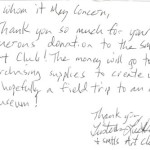 whom it May Concern,
Thank you so much for your
donation to the
Art Club! The money will go to
supplies to create
a field trip to an
museum!
Thank you,
Art Club